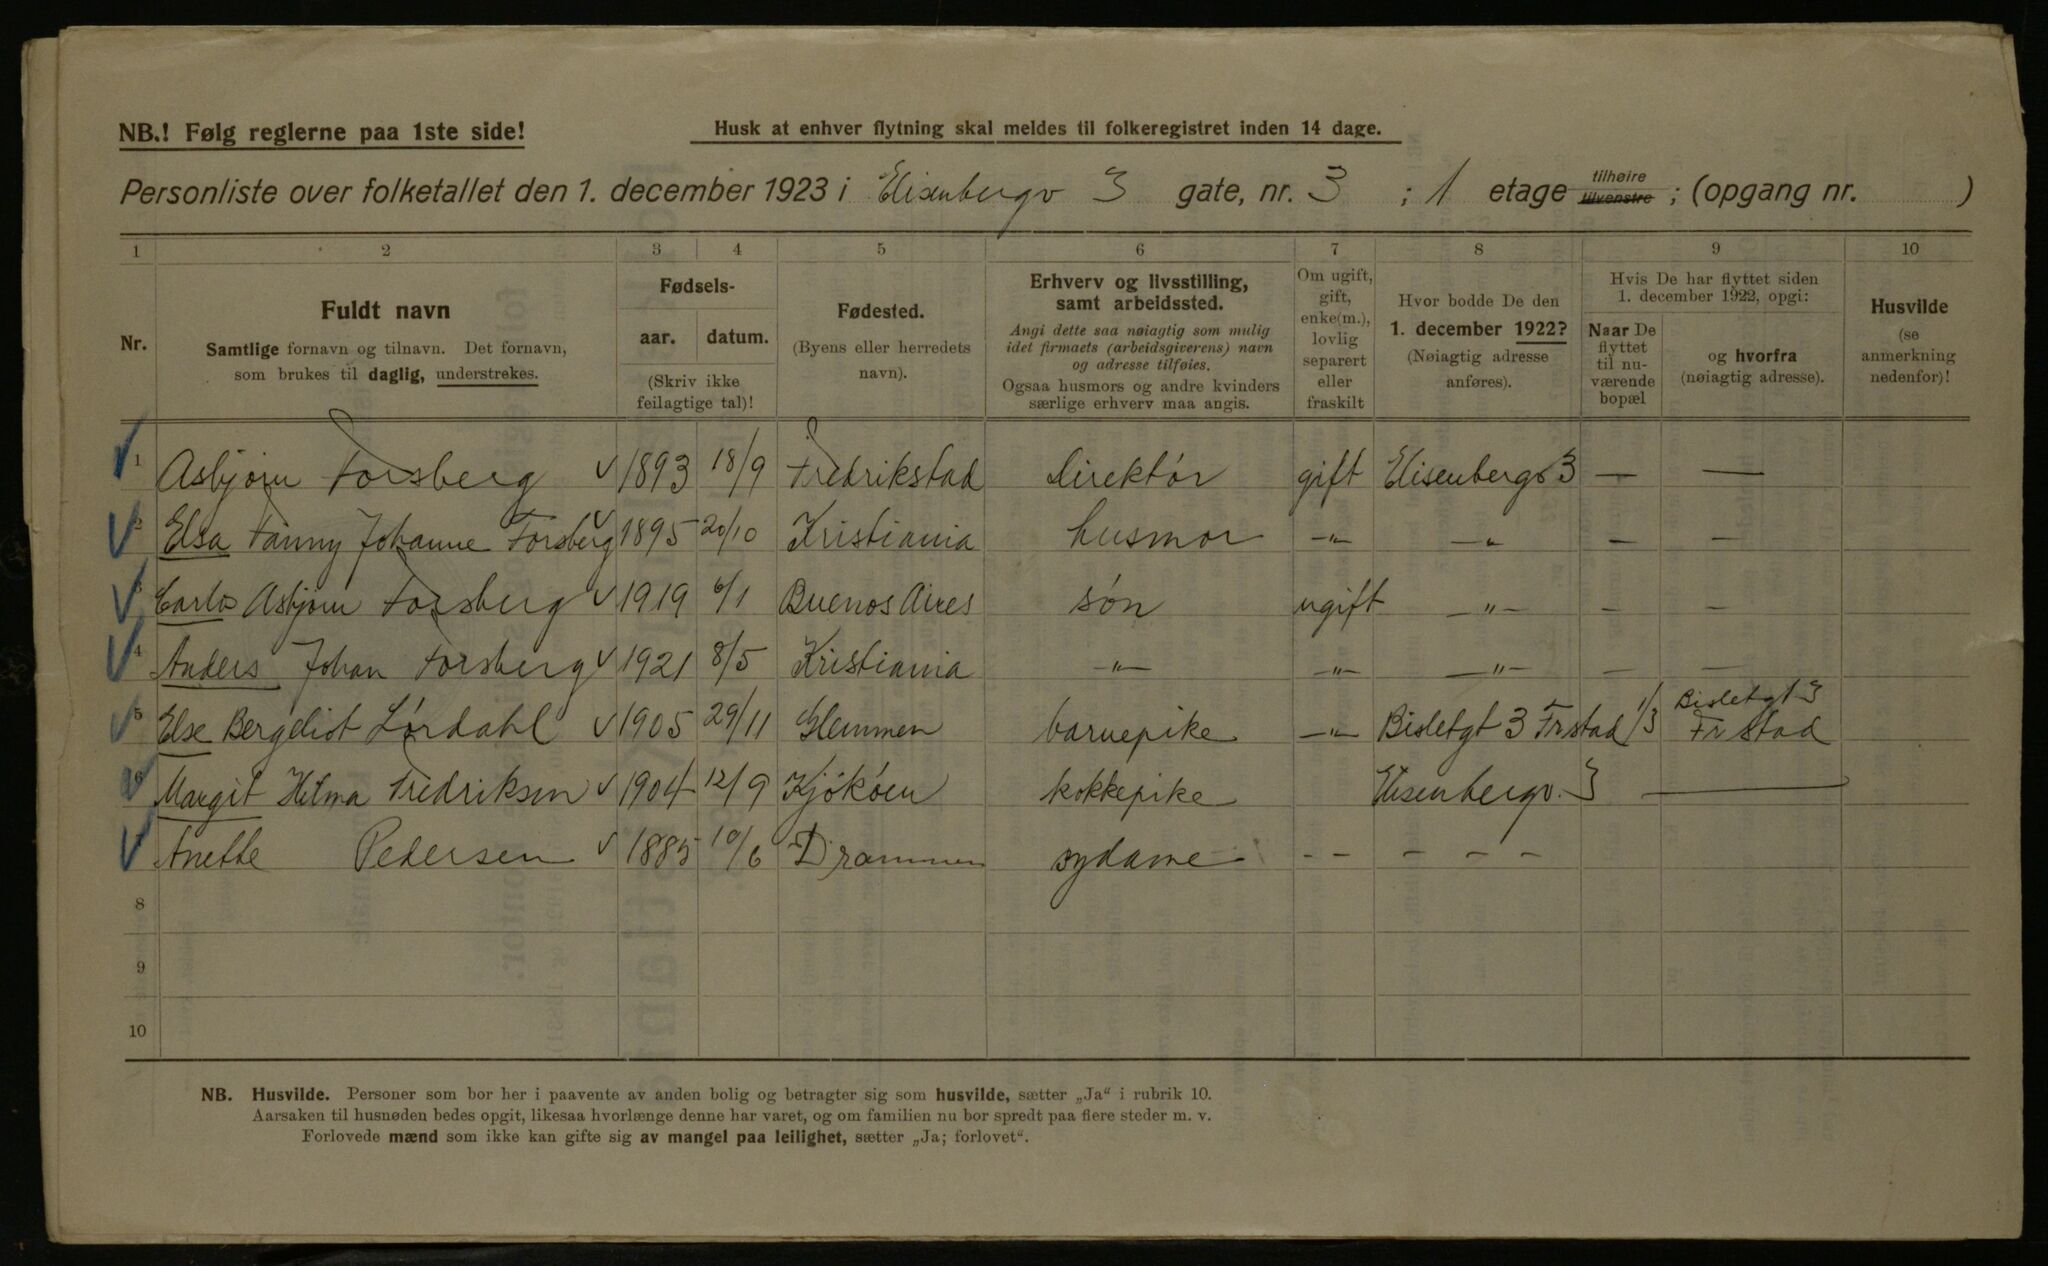 NB.! Følg reglerne paa 1ste side!
Husk at enhver flytning skal meldes til folkeregistret inden 14 dage.
Personliste over folketallet den 1. december 1923 i Elisenbergv 3 gate, nr. 3 ; 1 etage tilhøire tilvenstre ; (opgang nr. )
1 2 3 4 5 6 7 8 9 10
Nr.
Fuldt navn
Samtlige fornavn og tilnavn. Det fornavn,
som brukes til daglig, understrekes.
Fødsels-
aar. datum.
(Skriv ikke
feilagtige tal)!
Fødested.
(Byens eller herredets
navn).
Erhverv og livsstilling,
samt arbeidssted.
Angi dette saa nøiagtig som mulig
idet firmaets (arbeidsgiverens) navn
og adresse tilføies.
Ogsaa husmors og andre kvinders
særlige erhverv maa angis.
Om ugift,
gift,
enke(m.),
lovlig
separert
eller
fraskilt
Hvor bodde De den
1. december 1922?
(Nøiagtig adresse
anføres).
Hvis De har flyttet siden
1. december 1922, opgi:
Naar De
flyttet
til nu-
værende
bopæl
og hvorfra
(nøiagtig adresse).
Husvilde
(se
anmerkning
nedenfor)!
1 Asbjørn Forsberg 1893 18/9 Fredrikstad Direktør gift Elisenbergv 3 — —
2 Elsa Fanny Johanne Forsberg 1895 20/10 Kristiania husmor —"— —"— — —
3 Carlos Asbjørn Forsberg 1919 6/1 Buenos Aires søn ugift —"— — —
4 Anders Johan Forsberg 1921 8/5 Kristiania —"— —"— —"— — —
5 Else Bergliot Lørdahl 1905 29/11 Glemmen barnepike —"— Bisletgt 3 Frstad 1/3 Bisletgt 3 Frstad
6 Margit Hilma Fredriksen 1904 12/9 Kjøkøen kokkepike Elisenbergv. 3 —
Anette Pedersen 1885 10/6 Drammen sydame - - - - - -
8
9
10
NB. Husvilde. Personer som bor her i paavente av anden bolig og betragter sig som husvilde, sætter „Ja“ i rubrik 10.
Aarsaken til husnøden bedes opgit, likesaa hvorlænge denne har varet, og om familien nu bor spredt paa flere steder m. v.
Forlovede mænd som ikke kan gifte sig av mangel paa leilighet, sætter „Ja; forlovet“.